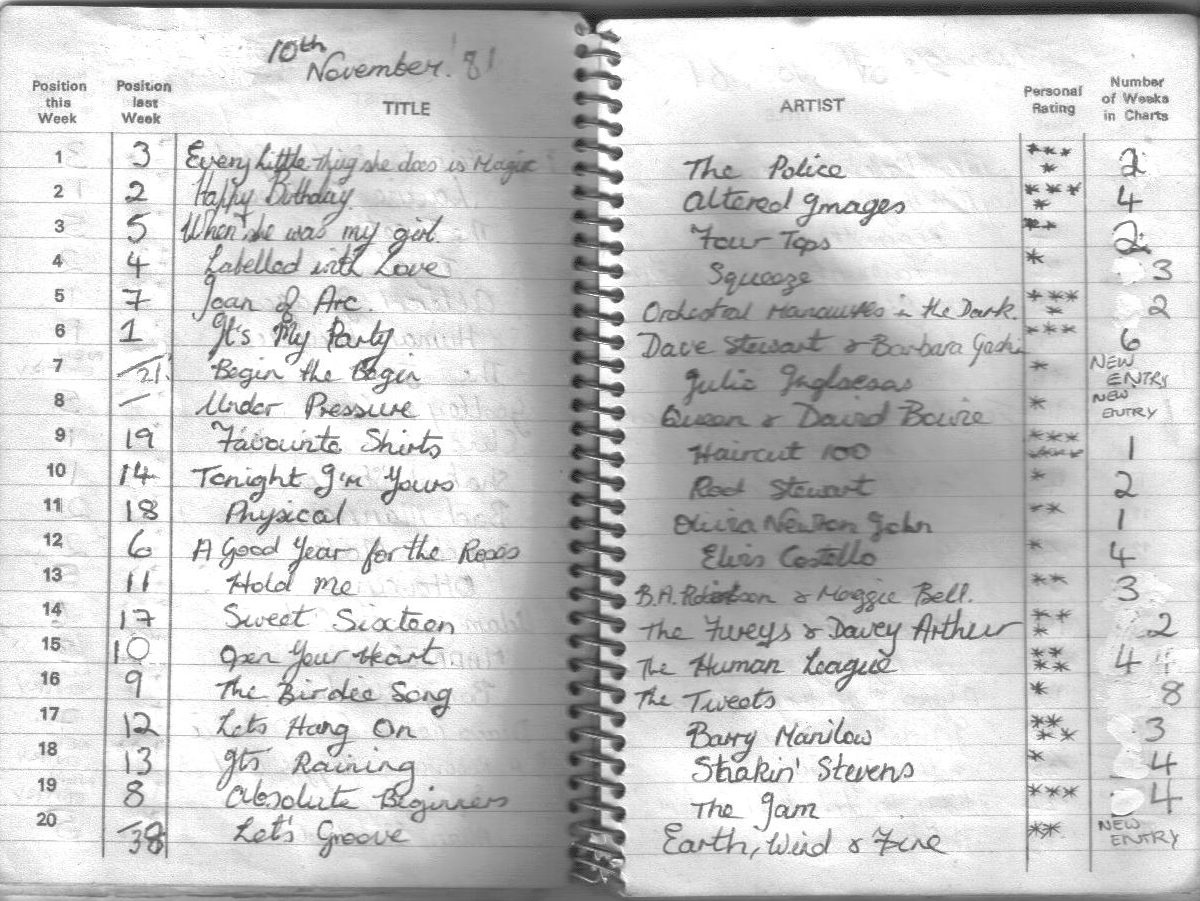 10th
November. '81
Position this Week | Position last Week | TITLE | ARTIST | Personal Rating | Number of Weeks in Charts
1 | 3 | Every little thing she does is Magic | The Police | **** | 2
2 | 2 | Happy Birthday. | Altered Images | **** | 4
3 | 5 | When she was my girl. | Four Tops | ** | 2
4 | 4 | Labelled with Love | Squeeze | * | 3
5 | 7 | Joan of Arc. | Orchestral Manouvres in the Dark. | **** | 2
6 | 1 | It's My Party | Dave Stewart & Barbara | *** | 6
7 | 21 | Begin the Begin | Julio | * | NEW ENTRY
8 | — | Under Pressure | Queen & David Bowie | * | NEW ENTRY
9 | 19 | Favourite Shirts | Haircut 100 | ****** | 1
10 | 14 | Tonight I'm Yours | Rod Stewart | * | 2
11 | 18 | Physical | Olivia Newton John | ** | 1
12 | 6 | A Good Year for the Roses | Elvis Costello | * | 4
13 | 11 | Hold Me | B.A. Robertson & Maggie Bell. | ** | 3
14 | 17 | Sweet Sixteen | The Fureys & Davey Arthur | *** | 2
15 | 10 | Open Your Heart | The Human League | **** | 4
16 | 9 | The Birdie Song | The Tweets | * | 8
17 | 12 | Lets Hang On | Barry Manilow | **** | 3
18 | 13 | Its Raining | Shakin' Stevens | * | 4
19 | 8 | Absolute Beginners | The Jam | *** | 4
20 | 38 | Let's Groove | Earth, Wind & Fire | ** | NEW ENTRY